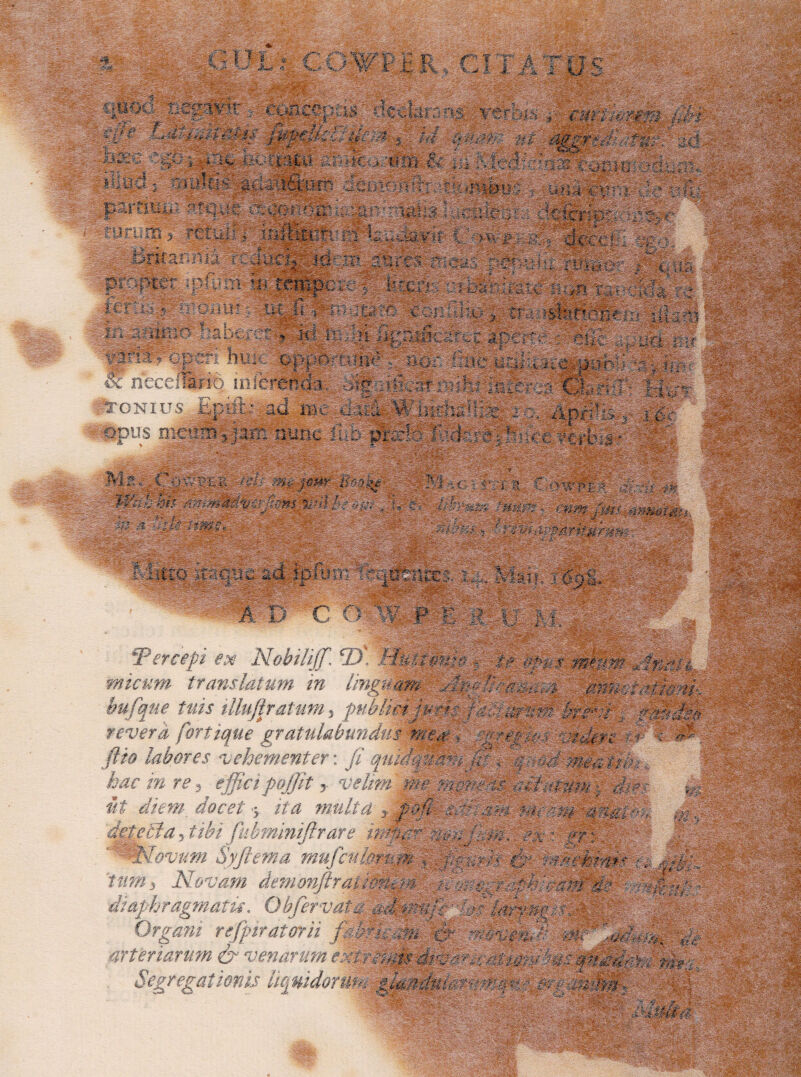 2 GUL: COWPER, CITATUS
quod negavit, conceptis declarans verbis, curtiorem sibi
esse Latinitatis supellectilem, id quam ut aggrediatur. ad
hæc ego, me hortatu amicorum & in Medicinæ commodum,
illud, multis adauctum demonstrationibus, una cum de usu
partium atque œconomia animalis luculenta descriptione,
turum, retuli, institutum laudavit COWPER, decessi ego
Britannia reduci, idem aures meas pepulit rumor, qua
propter ipsum in tempore, literis urbanitate non rancida re
fertis, monui, ut si, mutato consilio, translationem illam
in animo haberet, id mihi significaret aperte: esse apud me
varia, operi huic opportune, non sine utilitate publica, imo
& necessario inserenda. Significat mihi interea Clariss. HUT
TONIUS Epist: ad me data Whithalliæ 10. Aprilis, 169
opus meum, jam nunc sub prælo sudare, hisce verbis:
Mr. COWPER tels me your Booke
With his animadversions will be out, i. e.
in a litle time.
MAGISTER COWPER
librum tuum, cum suis annotati
nibus, brevi appariturum.
Mitto itaque ad ipsum sequentes. 14. Maij. 1698.
AD COWPERUM.
Percepi ex Nobiliss. D. Huttonio, te opus meum Anato
micum translatum in linguam Anglicanam annotationi-
busque tuis illustratum, publici juris facturum brevi, gaudeo
reverà fortique gratulabundus mea, egregios videre
stio labores vehementer: si quidquam sit, quod mea tibi
hac in re, effici possit, velim me moneas actutum, dies
ut diem docet, ita multa, post editam meam anatom
detecta, tibi subministrare impar non sum. ex: gr:
Novum Systema musculorum, figuris & machinis
tum, Novam demonstrationem iconographicam de musculis
diaphragmatis. Observata ad musculos laryngis.
Organi respiratorii fabricam & movendi methodum. de
arteriarum & venarum extremis divaricationibus quædam mea.
Segregationis liquidorum glandularumque organum,
Multa